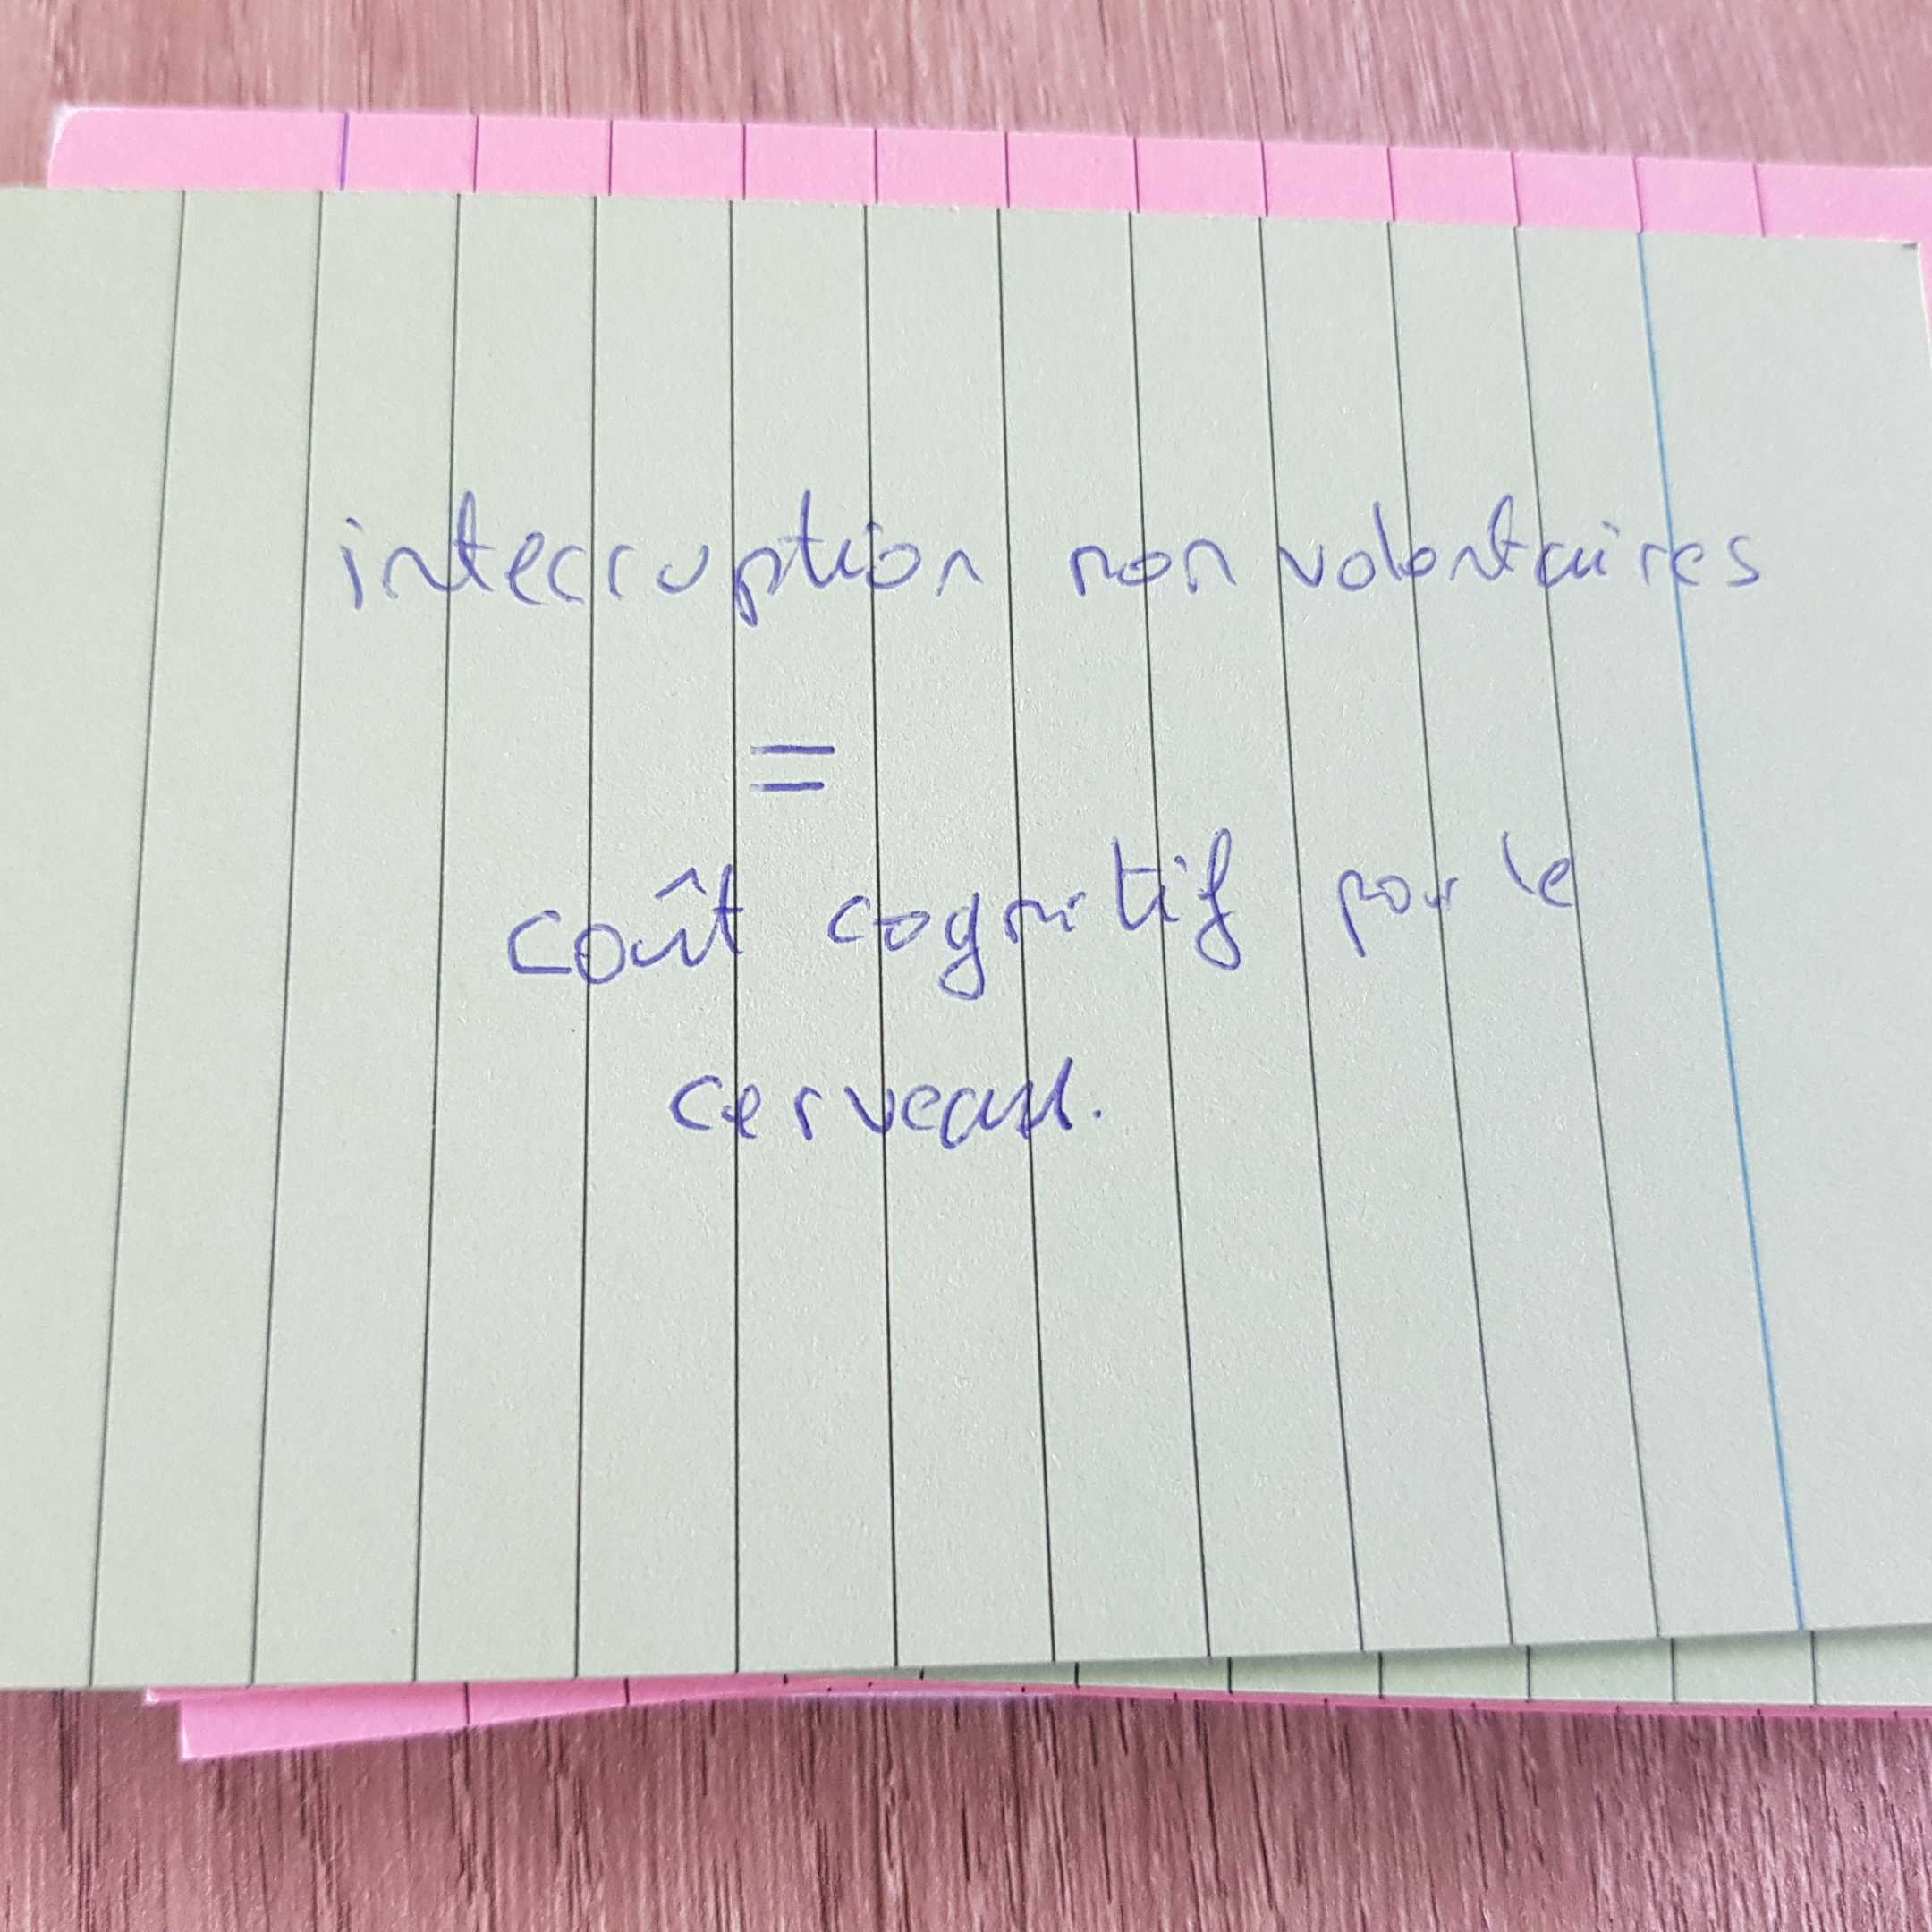 interruption non volontaires
=
coût cognitif pour le
cerveau.